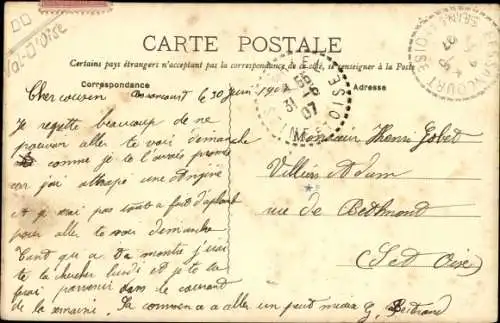 Val-d'Oise
CARTE POSTALE
Certains pays étrangers n'acceptant pas la correspondance de ce côté, se renseigner à la Poste
Correspondance
Adresse
Cher cousin
le 30 Juin 190
Je regrette beaucoup de ne
pouvoir aller te voir dimanche
comme je te l'avais promis
car j'ai attrapé une Angine
et je suis pas tout a fait d'aplomb
pour aller te voir dimanche
Tant qu'a ta montre j'irai
te la chercher lundi et je te la
ferai parvenir dans le courant
de la semaine. Sa commence a aller un petit mieux G. Bertrand
Monsieur Henri Gobet
Villiers Adam
rue de Bethmont
Set Oise
31
07
OISE
SEINE
OISE
07